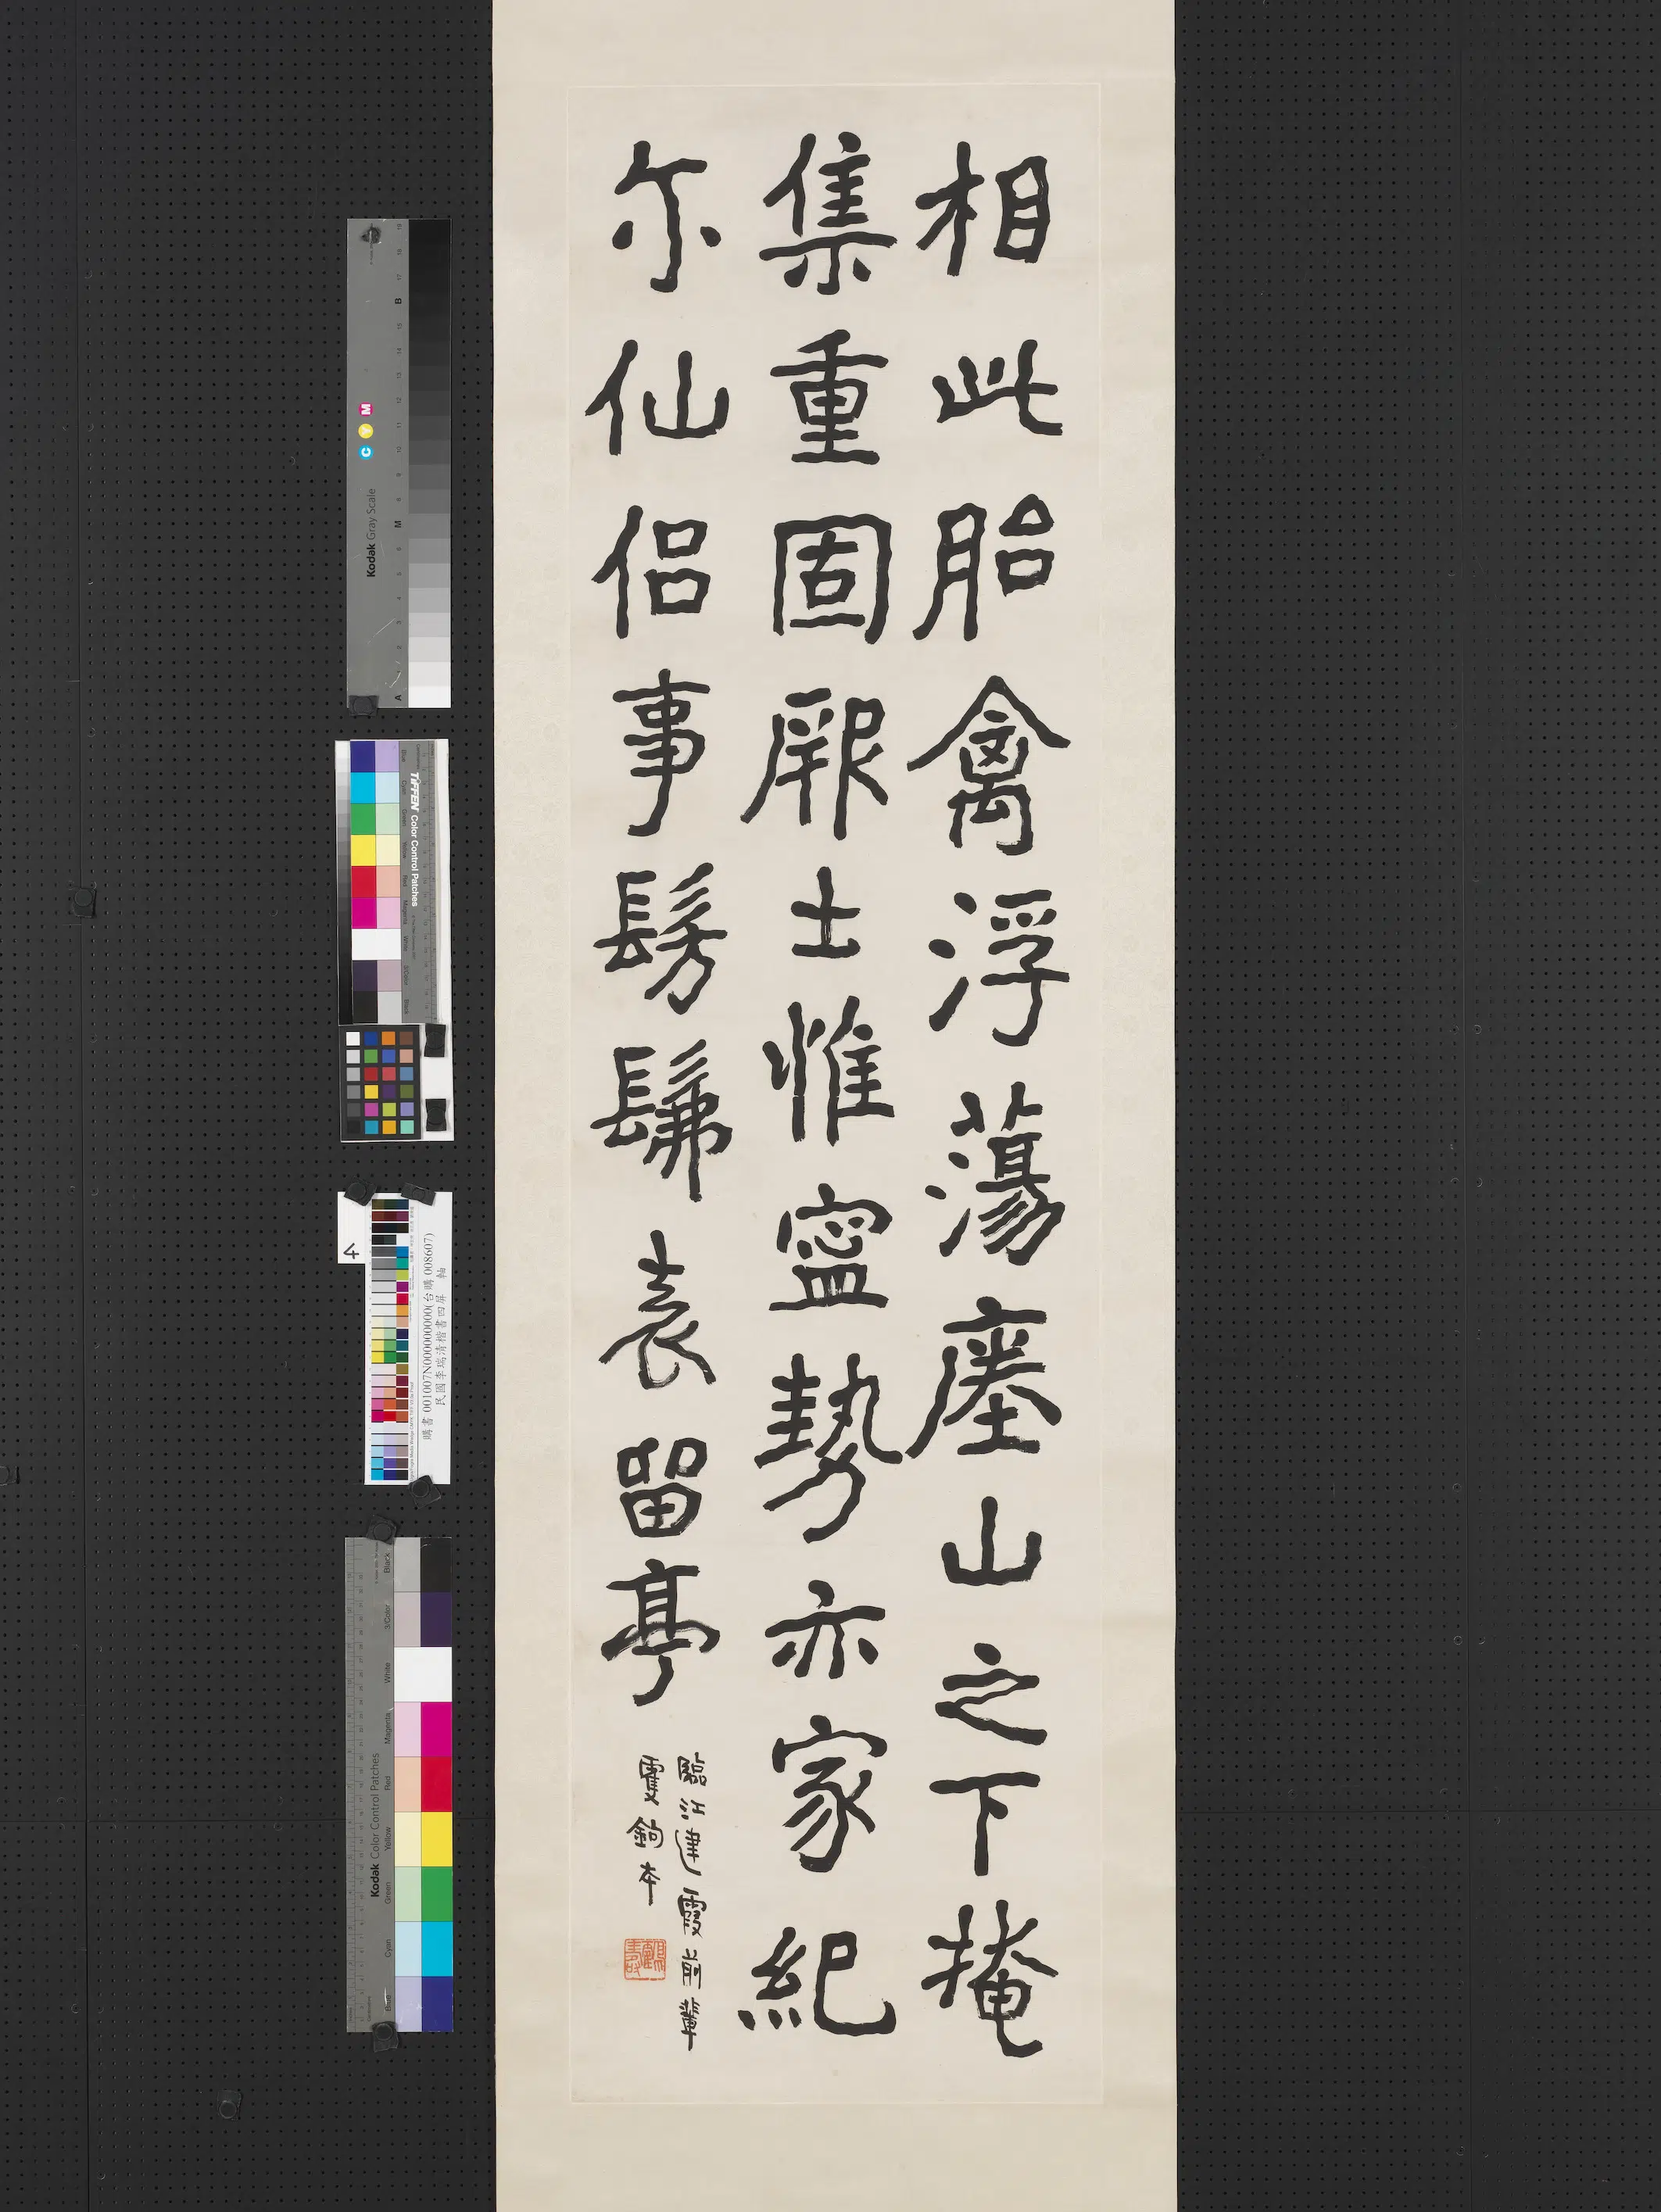 相此胎禽浮蕩㕓山之下掩
集重固厥士惟寧勢亦家紀
尔仙侣事髣髴表留亭
臨江建霞前輩
雙鉤本
Kodak Gray Scale
C Y M
A 1 2 3 4 5 6 M 8 9 10 11 12 13 14 15 B 17 18 19
TIFFEN Color Control Patches
4
購書 001007N000000000(台購 008607)
民國李瑞清楷書四屏 軸
Kodak Color Control Patches
Blue Cyan Green Yellow Red Magenta White 3/Color Black